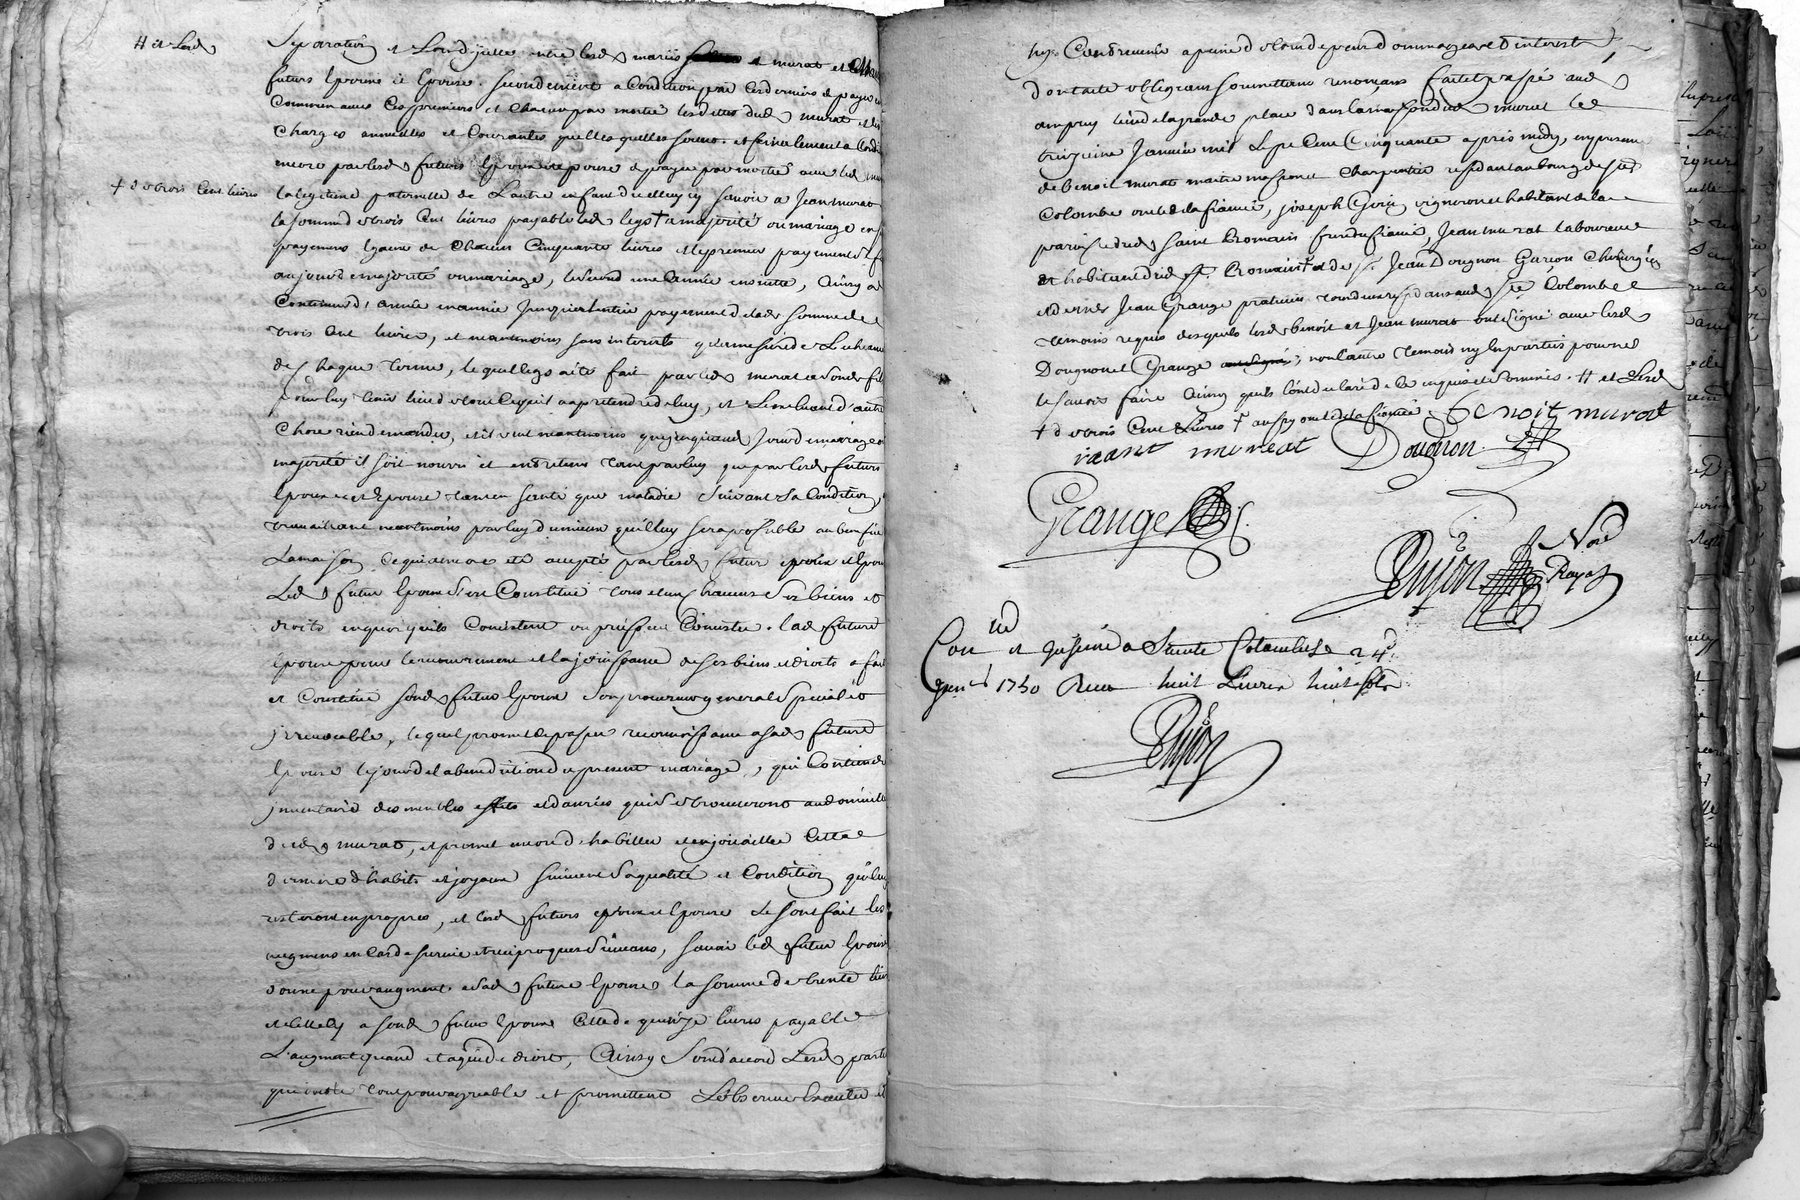 # et Lesd
separation et
futurs Epoux et Epouse. Secondement a Condition par lesd derniers de payer
Commun avec les premiers et chacun par moitié les dettes dud murat et les
Charges annuelles et Courantes quelles quelles soient. et finalement a Condi
encore par lesd futurs Epoux et Epouse de payer par moitié avec led mur
† de trois Cent livres
la legitime paternelle de L'autre enfant d'icelluy savoir a Jean murat
la somme de trois Cent livres payable led legs † a majorité ou mariage en
payemens egaux de Chacun Cinquante livres et le premier payement
au jour de majorité ou mariage, le second une Année ensuitte, Ainsy a
Continuer d'année en année jusqu'a l'entier payement de lad somme de
trois Cent livres, et neantmoins sans interets qu'a mesure de L'echeance
de Chaque terme, lequel legs a été fait par led murat a sond fils
pour luy tenir lieu de tout ce qu'il a a pretendre de luy, et Le moyennant d'autre
Chose rien demander, et il veut neantmoins que jusqu'aud Jour de mariage ou
majorité il soit nourri et entretenu tant par luy que par lesd futurs
Epoux et Epouse tant en santé que maladie suivant sa Condition,
travaillant neantmoins par luy du mieux qu'il luy sera possible au benefice
La maison Ce qui a encore eté accepté par lesd futur epoux et Epouse
Led futur Epoux s'est Constitué tous et un Chacuns ses biens et
droits en quoi qu'ils Consistent ou puissent Consister. lad future
Epouse pour le recouvrement et la jouissance de ses biens et droits a fait
et Constitué sond futur Epoux son procureur general special et
irrevocable, lequel promet de passer reconnoissance a sad future
Epouse le jour de la benediction du present mariage, qui Contiendra
inventaire des meubles effets et danrées qui se trouveront au domicille
dud murat, et promet encore d'habiller et enjoialler Cette
derniere d'habits et joyaux suivant sa qualité et Condition qui luy
resteront en propres, et lesd futurs epoux et Epouse se sont fait les
augmens en Cas de survie et reciproques suivans, savoir led futur Epoux
donne pour augment a sad future Epouse la somme de trente livres
et celle cy a sond futur Epoux Celle de quinze livres payable
L'augment quand et a qui de droit, Ainsy Sont d'accord Lesd parties
que ont le tout pour agreable et promettent L'observer Executer et
Contrevenir a peine de tous depens dommages et interets
dont acte obligeans soumettans renonçans fait et passé aud
la grande place dans la maison dud murat le
treizieme Janvier mil sept Cent Cinquante apres midy, en presence
de benoit murat maitre masson et Charpentier residant au bourg de Ste
Colombe oncle de la fiancée, joseph Girin vigneron et habitant de la
paroisse dud saint Romain frere du fiancé, Jean murat laboureur
et habitant dud St. Romain † et de Sr. Jean Dougnon Garçon Chirurgien
et de me Jean Grange praticien tous deux residans aud Ste Colombe
temoins requis desquels lesd benoit et Jean murat ont signé avec lesd
Dougnon et Grange ; non l'autre temoin ny les parties pour ne
le savoir faire Ainsy qu'ils l'ont declaré de ce enquis et sommés. # et Lesd
† de trois Cent Livres † aussy oncle de la fiancée. benoit murat
ieant mureat Dougnon
Grange
Guyon
Nore Royal
Con et Insinué a Sainte Colombe le 24
Janer 1750 Receu huit Livres huit sols
Guyon